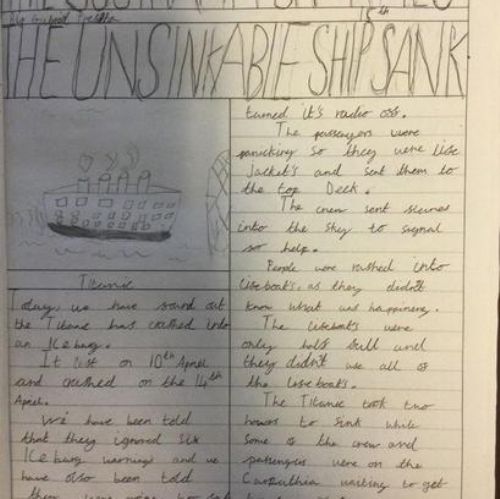 THE SOUTHAMPTON TIMES
By
15th
THE UNSINKABLE SHIP SANK
Titanic
Today, we have sound out
the Titanic has crashed into
an Iceburg.
It left on 10th April
and crashed on the 14th
April.
We have been told
that they ignored six
Iceburg warnings and we
have also been told
they were going too fast
turned it's radio oss.
The passengers were
panicking so they wore lise
Jacket's and sent them to
the top Deck.
The crew sent slares
into the sky to signal
sor help.
People were rushed into
liseboat's. as they didn't
know what was happening.
The liseboats were
only hals sull and
they didn't use all os
the lise boat's.
The Titanic took two
howers to sink while
some os the crew and
passengers were on the
Carpathia waiting to get